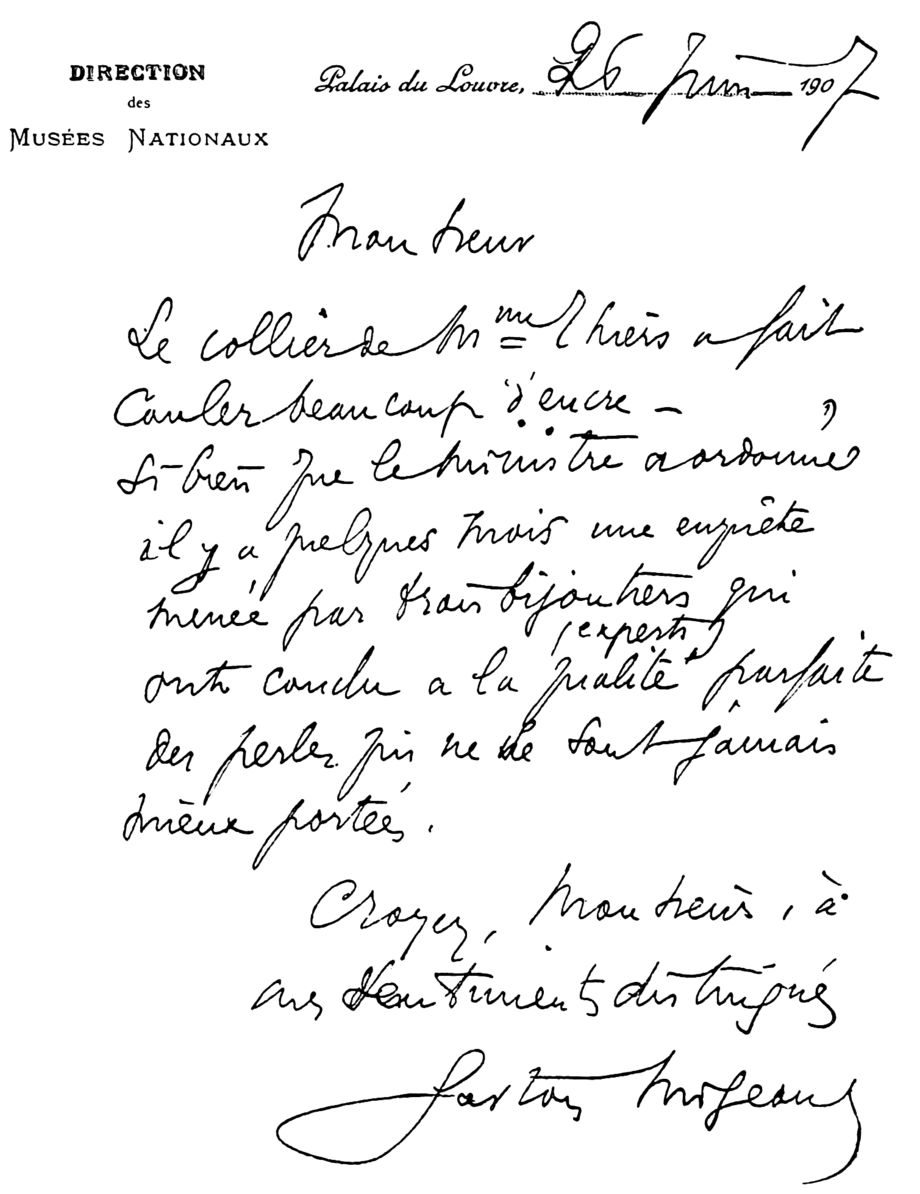 DIRECTION
des
MUSÉES NATIONAUX
Palais du Louvre, 26 Juin 1907
Monsieur
Le collier de Mme Thiers a fait
couler beaucoup d'encre —
si bien que le ministre a ordonné
il y a quelques mois une enquête
menée par trois bijoutiers qui
(experts)
ont conclu à la qualité parfaite
des perles qui ne se sont jamais
mieux portées.
Croyez, Monsieur, à
mes sentiments distingués
Gaston Migeon